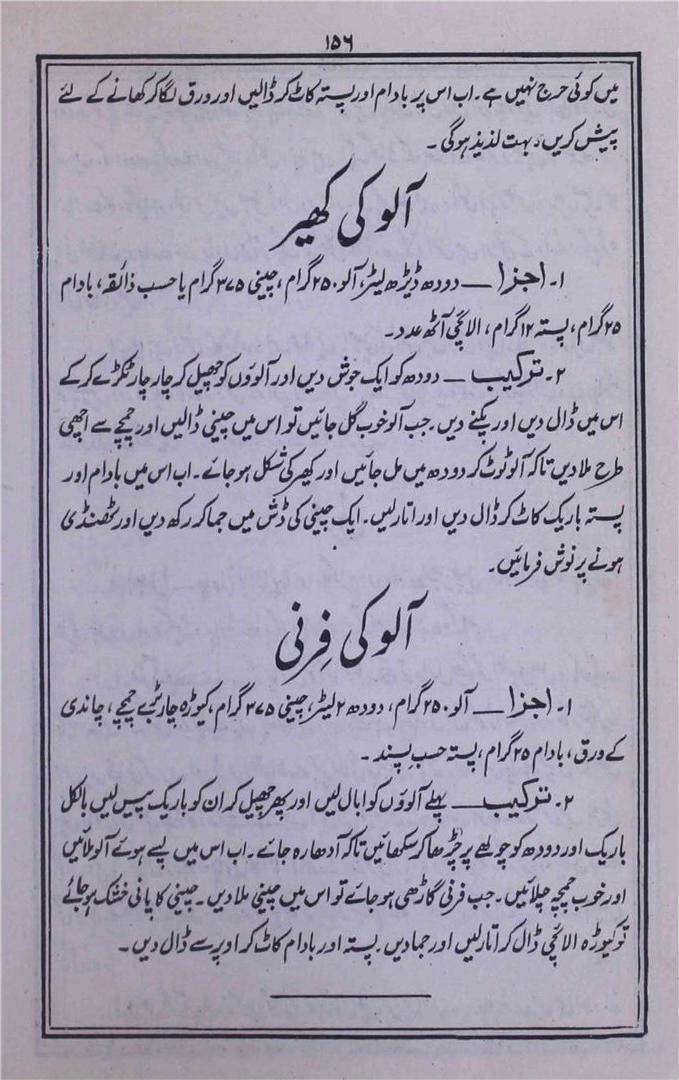 ۱۵۶
میں کوئی حرج نہیں ہے۔ اب اس پر بادام اور پستہ کاٹ کر ڈالیں اور ورق لگا کر کھانے کے لئے
پیش کریں، بہت لذیذ ہوگی۔
آلو کی کھیر
۱۔ اجزا ــــ دودھ ڈیڑھ لیٹر، آلو ۲۵۰ گرام، چینی ۳۷۵ گرام یا حسب ذائقہ، بادام
۲۵ گرام، پستہ ۱۲ گرام، الائچی آٹھ عدد۔
۲۔ ترکیب ــــ دودھ کو ایک جوش دیں اور آلوؤں کو چھیل کر چار چار ٹکڑے کر کے
اس میں ڈال دیں اور پکنے دیں۔ جب آلو خوب گل جائیں تو اس میں چینی ڈالیں اور چمچے سے اچھی
طرح ملا دیں تاکہ آلو ٹوٹ کر دودھ میں مل جائیں اور کھیر کی شکل ہو جائے۔ اب اس میں بادام اور
پستہ باریک کاٹ کر ڈال دیں اور اتار لیں۔ ایک چینی کی ڈش میں جما کر رکھ دیں اور ٹھنڈی
ہونے پر نوش فرمائیں۔
آلو کی فِرنی
۱۔ اجزا ــــ آلو ۲۵۰ گرام، دودھ ۲ لیٹر، چینی ۳۷۵ گرام، کیوڑہ چار بڑے چمچے، چاندی
کے ورق، بادام ۲۵ گرام، پستہ حسب پسند۔
۲۔ ترکیب ــــ پہلے آلوؤں کو ابال لیں اور پھر چھیل کر ان کو باریک پیس لیں بالکل
باریک اور دودھ کو چولھے پر چڑھا کر سکھائیں تاکہ آدھا رہ جائے۔ اب اس میں پسے ہوئے آلو ملائیں
اور خوب چمچہ چلائیں۔ جب فرنی گاڑھی ہو جائے تو اس میں چینی ملا دیں۔ چینی کا پانی خشک ہو جائے
تو کیوڑہ الائچی ڈال کر اتار لیں اور جما دیں۔ پستہ اور بادام کاٹ کر اوپر سے ڈال دیں۔